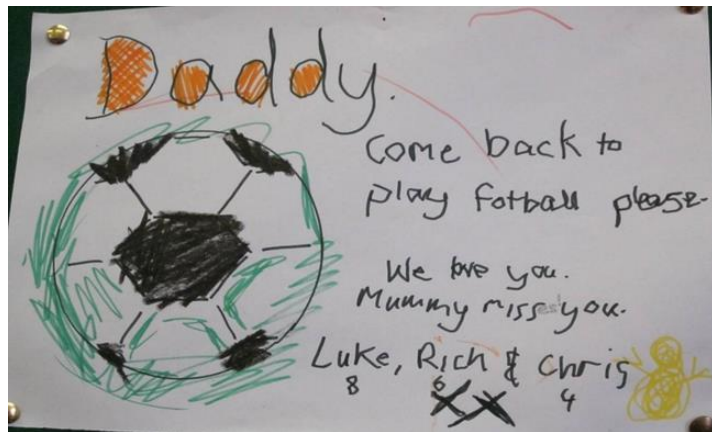 Daddy.
Come back to
play fotball please.
We love you.
Mummy misses you.
Luke, Rich & Chris
8 6 4
XX